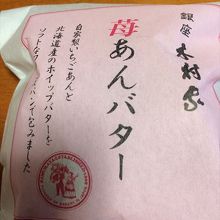 銀座 木村家
苺あんバター
自家製いちごあんと
北海道産のホイップバターを
ソフトなフランスパンで包みました